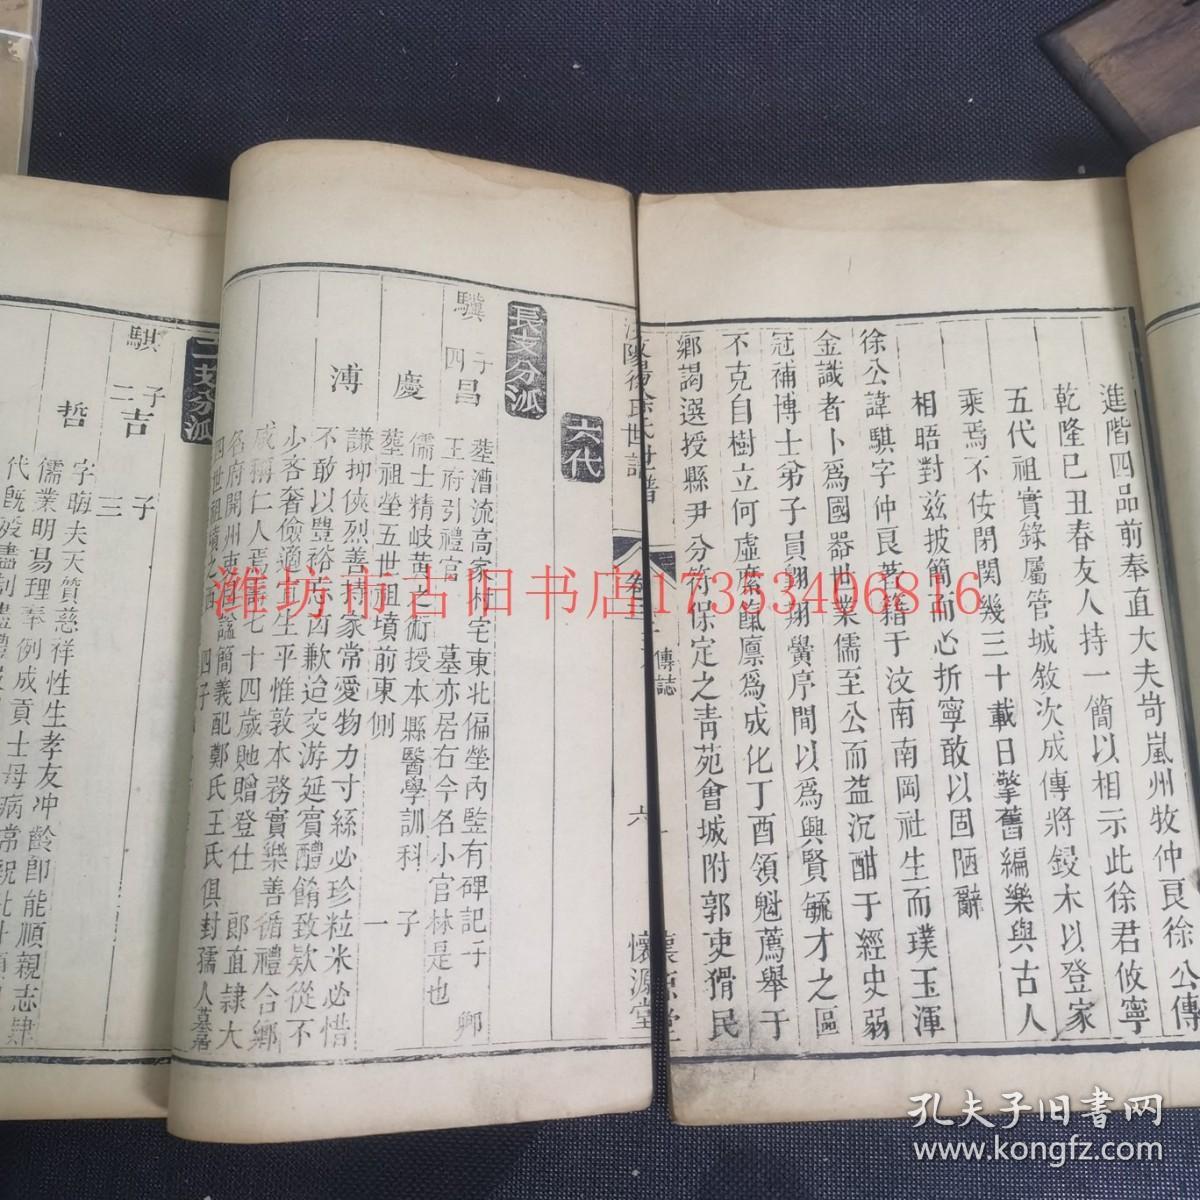 進階四品前奉直大夫岢嵐州牧仲良徐公傳
乾隆巳丑春友人持一簡以相示此徐君攸寧
五代祖實錄屬管城敘次成傳將鋟木以登家
乘焉不佞閉関幾三十載日擎舊編樂與古人
相晤對兹披簡而心折寧敢以固陋辭
徐公諱騏字仲良著籍于汶南南岡社生而璞玉渾
金識者卜爲國器世業儒至公而益沉酣于經史弱
冠補博士弟子員翺翔黌序間以爲興賢毓才之區
不克自樹立何虛縻餼廪爲成化丁酉領魁薦舉于
鄉謁選授縣尹分符保定之靑苑會城附郭吏猾民
傳誌
懷源堂
徐氏世譜
六
懷源堂
六代
長支分派
驥 四子 昌
塟漕流高家村宅東北偏塋內竪有碑記子 鄉
王府引禮官 墓亦居右今名小官林是也
慶
儒士精岐黄之術授本縣醫學訓科 子 一
塟祖塋五世祖墳前東側
溥
謙抑俠烈善持家常愛物力寸絲必珍粒米必惜
不敢以豐裕 交游延賓醴餚致欵從不
少吝奢儉適 生平惟敦本務實樂善循禮合鄉
咸稱仁人焉 七十四歲貤贈登仕 郎直隷大
名府開州吏目諡簡義配鄭氏王氏俱封孺人墓
四世祖墳之西 四子
二支分派
騏 二子 吉 三 子
哲
字晦夫天質慈祥性生孝友冲齡卽能順親志肄
儒業明易理奉例成貢士母病常
潍坊市古旧书店17353406816
孔夫子旧书网
www.kongfz.com